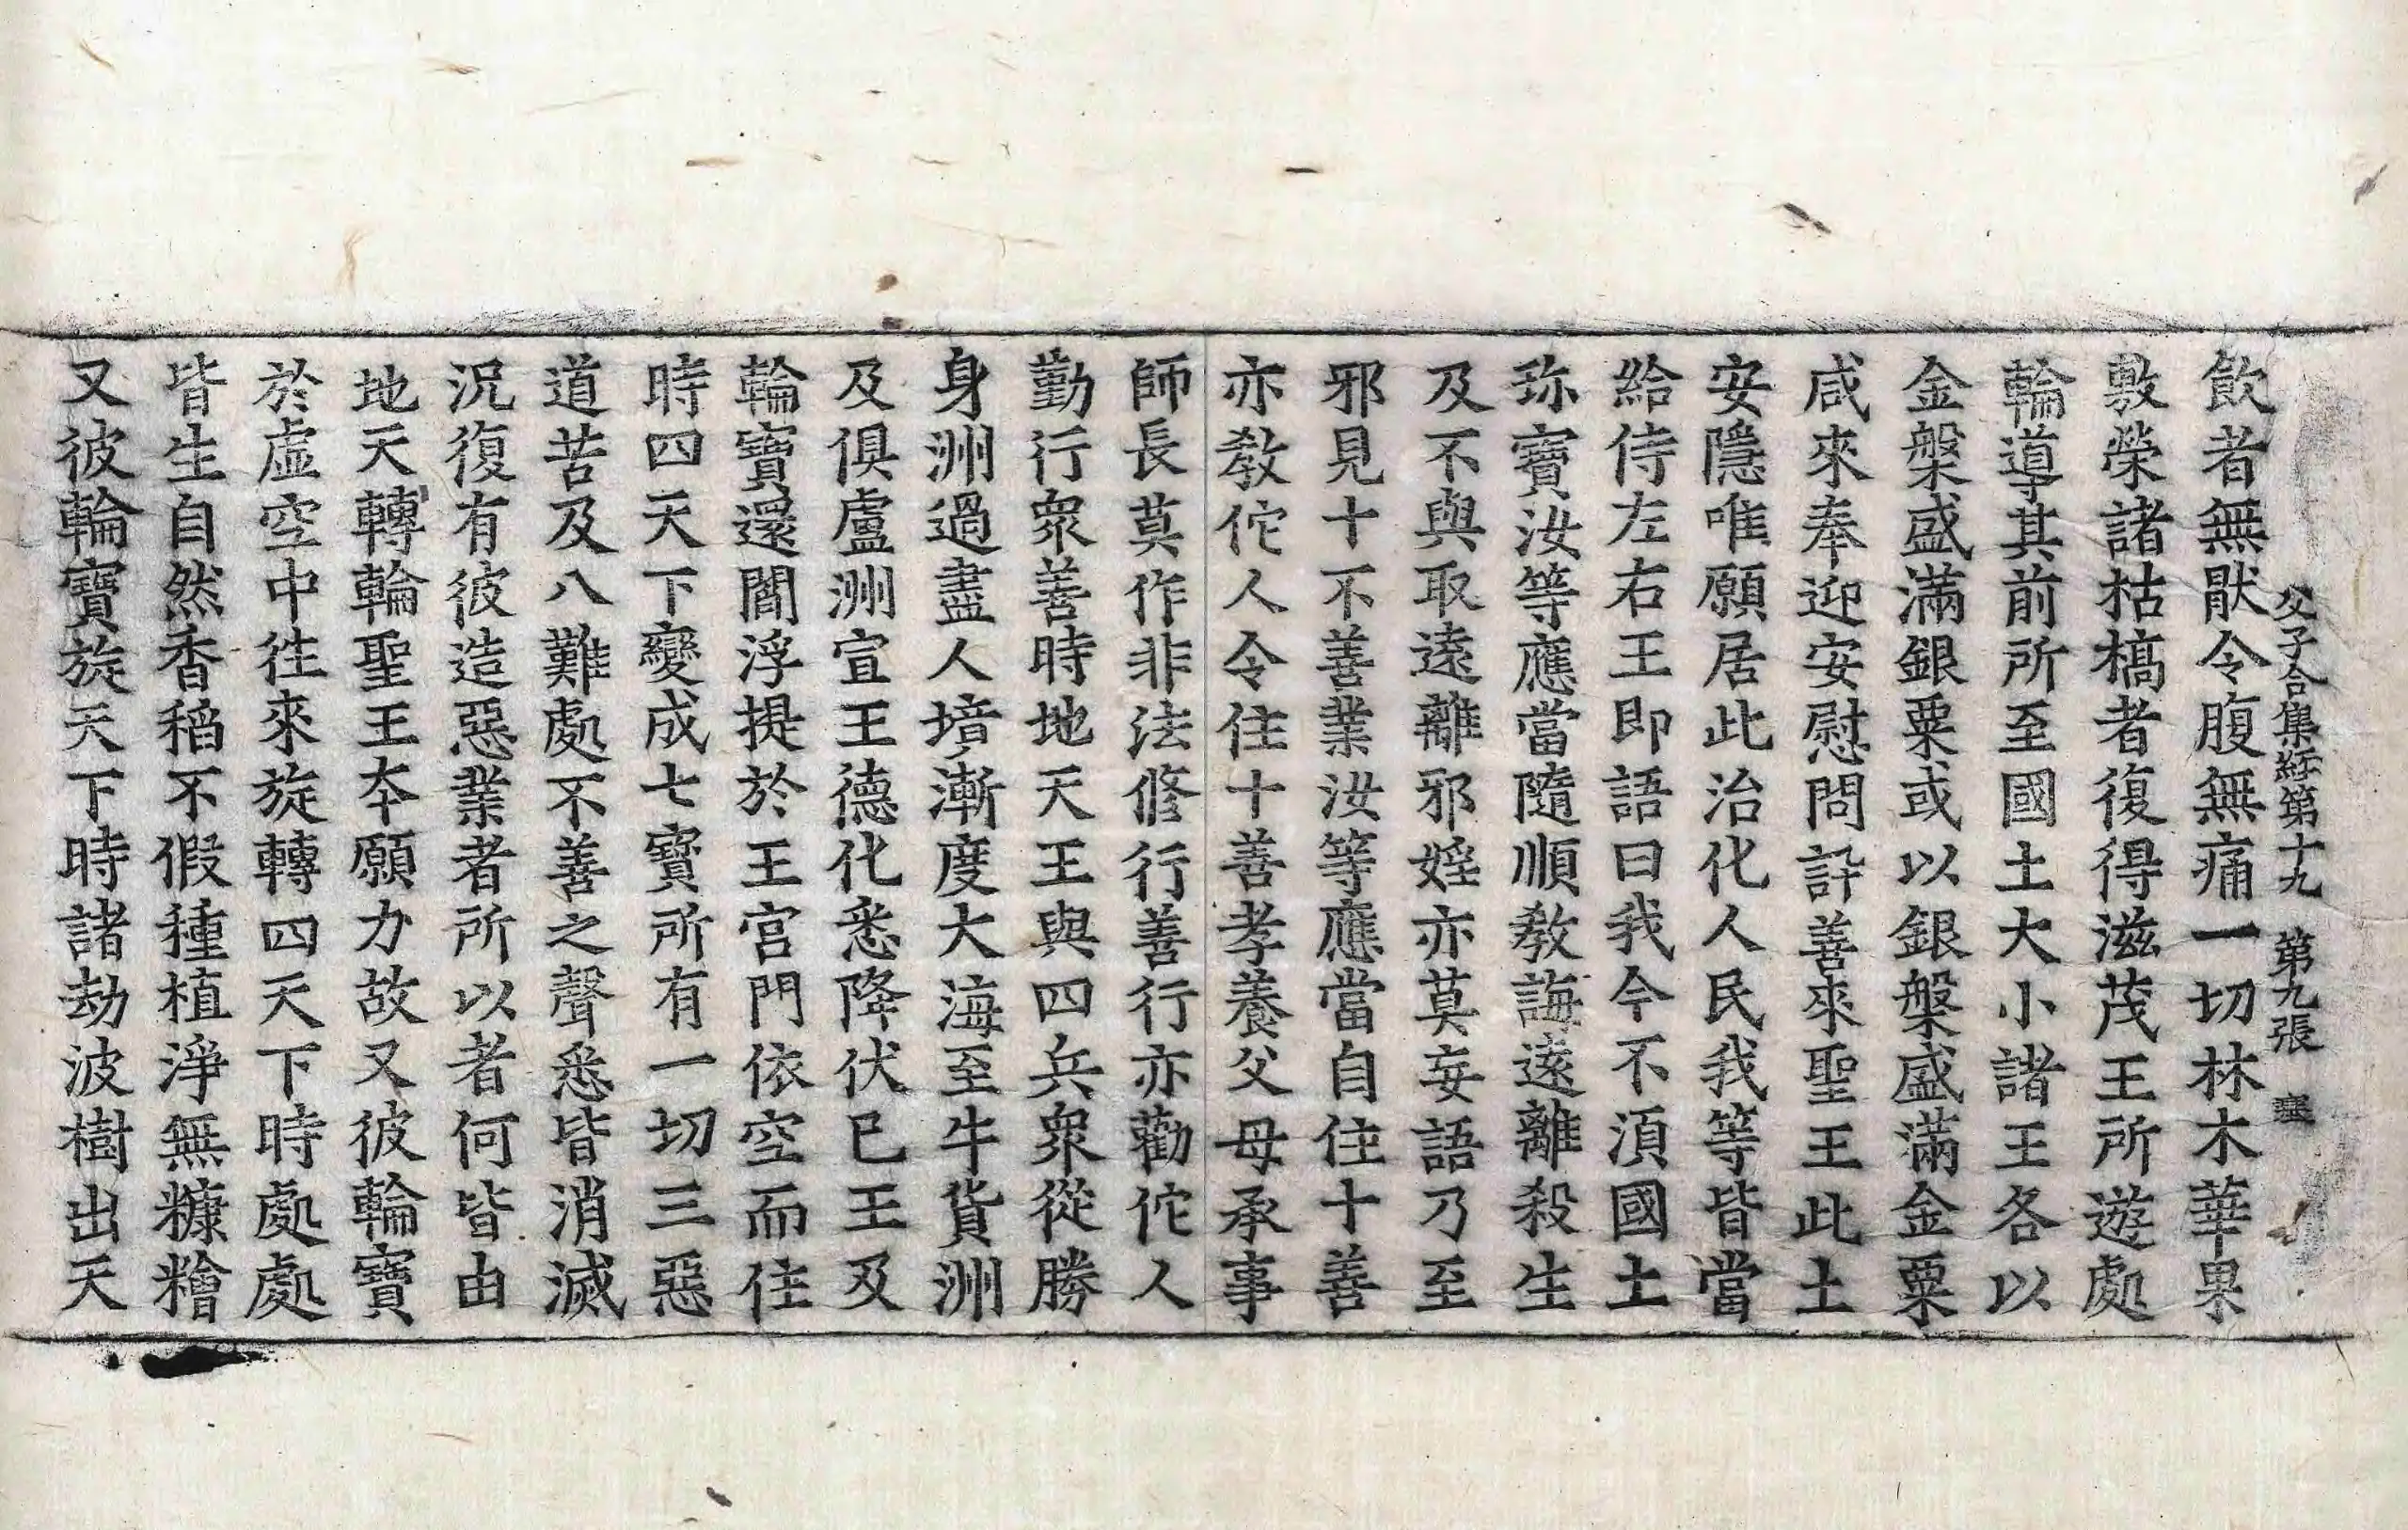 父子合集経第十九 第九張 塞
飲者無猒令腹無痛一切林木華果
敷榮諸枯槁者復得滋茂王所遊處
輪導其前所至國土大小諸王各以
金槃盛滿銀粟或以銀槃盛滿金粟
咸來奉迎安慰問訐善來聖王此土
安隱唯願居此治化人民我等皆當
給侍左右王即語曰我今不湏國土
珎寶汝等應當隨順教誨遠離殺生
及不與取遠離邪婬亦莫妄語乃至
邪見十不善業汝等應當自住十善
亦教佗人令住十善孝養父母承事
師長莫作非法修行善行亦勸佗人
勤行衆善時地天王與四兵衆從勝
身洲過盡人境漸度大海至牛貨洲
及俱盧洲宣王德化悉降伏已王及
輪寶還閻浮提於王宮門依空而住
時四天下變成七寶所有一切三惡
道苦及八難處不善之聲悉皆消滅
況復有彼造惡業者所以者何皆由
地天轉輪聖王夲願力故又彼輪寶
於虛空中徃來旋轉四天下時處處
皆生自然香稻不假種植淨無糠糩
又彼輪寶旋天下時諸劫波樹出天